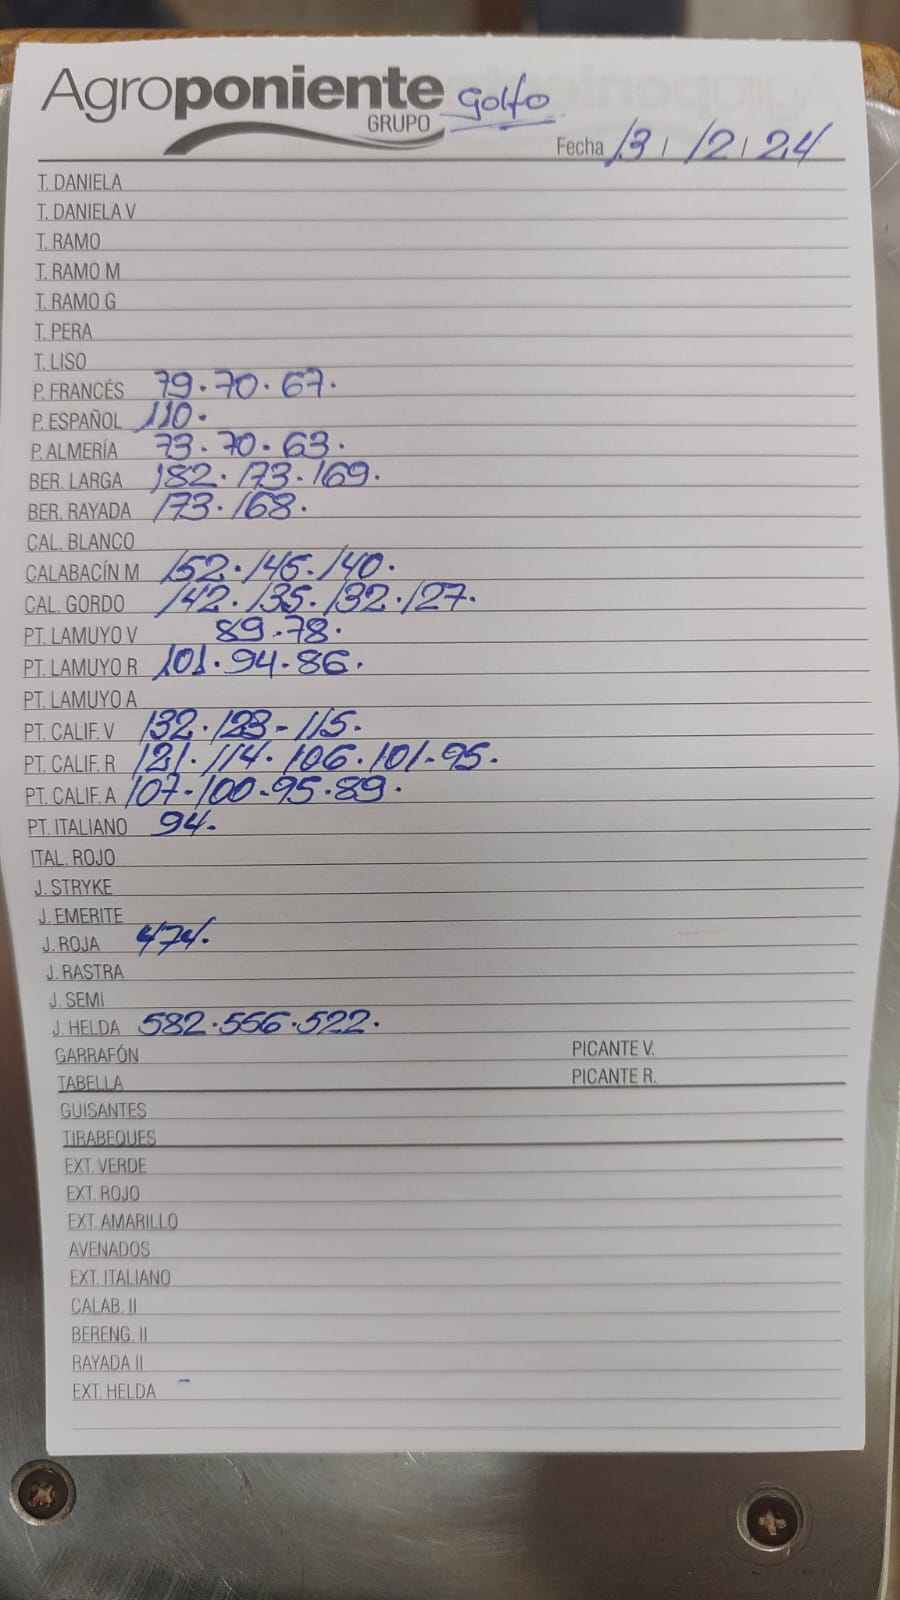 Agroponiente Golfo
GRUPO
Fecha 13 / 12 / 24
T. DANIELA
T. DANIELA V
T. RAMO
T. RAMO M
T. RAMO G
T. PERA
T. LISO
P. FRANCÉS 79. 70. 67.
P. ESPAÑOL 110.
P. ALMERÍA 73. 70. 63.
BER. LARGA 182. 173. 169.
BER. RAYADA 173. 168.
CAL. BLANCO
CALABACÍN M 152. 145. 140.
CAL. GORDO 142. 135. 132. 127.
PT. LAMUYO V 89. 78.
PT. LAMUYO R 101. 94. 86.
PT. LAMUYO A
PT. CALIF. V 132. 123 - 115.
PT. CALIF. R 121. 114. 106. 101. 95.
PT. CALIF. A 107. 100. 95. 89.
PT. ITALIANO 94.
ITAL. ROJO
J. STRYKE
J. EMERITE
J. ROJA 474.
J. RASTRA
J. SEMI
J. HELDA 582. 556. 522.
GARRAFÓN PICANTE V.
TABELLA PICANTE R.
GUISANTES
TIRABEQUES
EXT. VERDE
EXT. ROJO
EXT. AMARILLO
AVENADOS
EXT. ITALIANO
CALAB. II
BERENG. II
RAYADA II
EXT. HELDA -